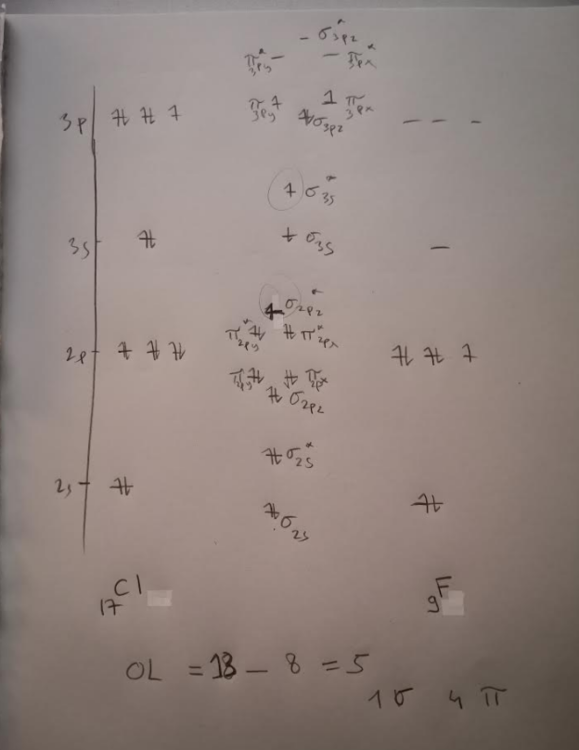 σ*3pz
π*3py π*3px
3p π3py π3px
σ3pz
σ*3s
3s σ3s
σ*2pz
π*2py π*2px
2p
π2py π2px
σ2pz
σ*2s
2s
σ2s
17Cl 9F
OL = 13 - 8 = 5
1 σ 4 π